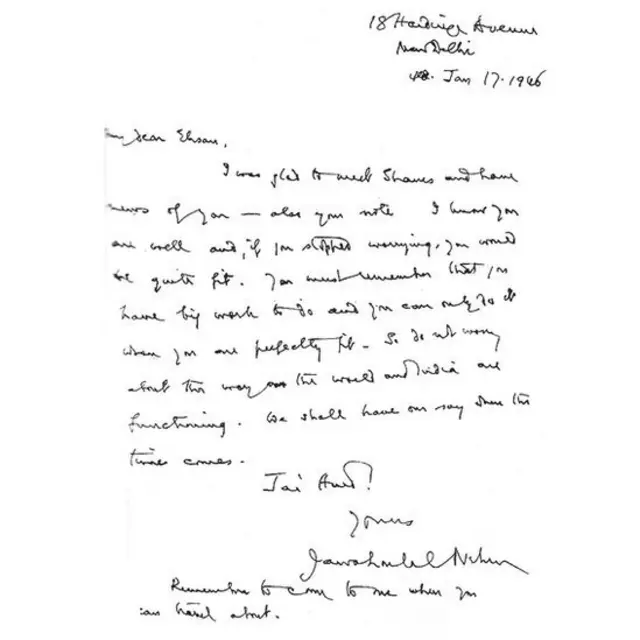 18 Hardinge Avenue
New Delhi
Jan 17. 1946
My dear Ehsan,
I was glad to meet Shaws and have
news of you — also your note I know you
are well and, if you stopped worrying, you would
be quite fit. You must remember that you
have big work to do and you can only do it
when you are perfectly fit - So do not worry
about the way the world and India are
functioning. We shall have our say when the
time comes.
Jai Hind!
Yours
Jawaharlal Nehru
Remember to come to me when you
can travel about.